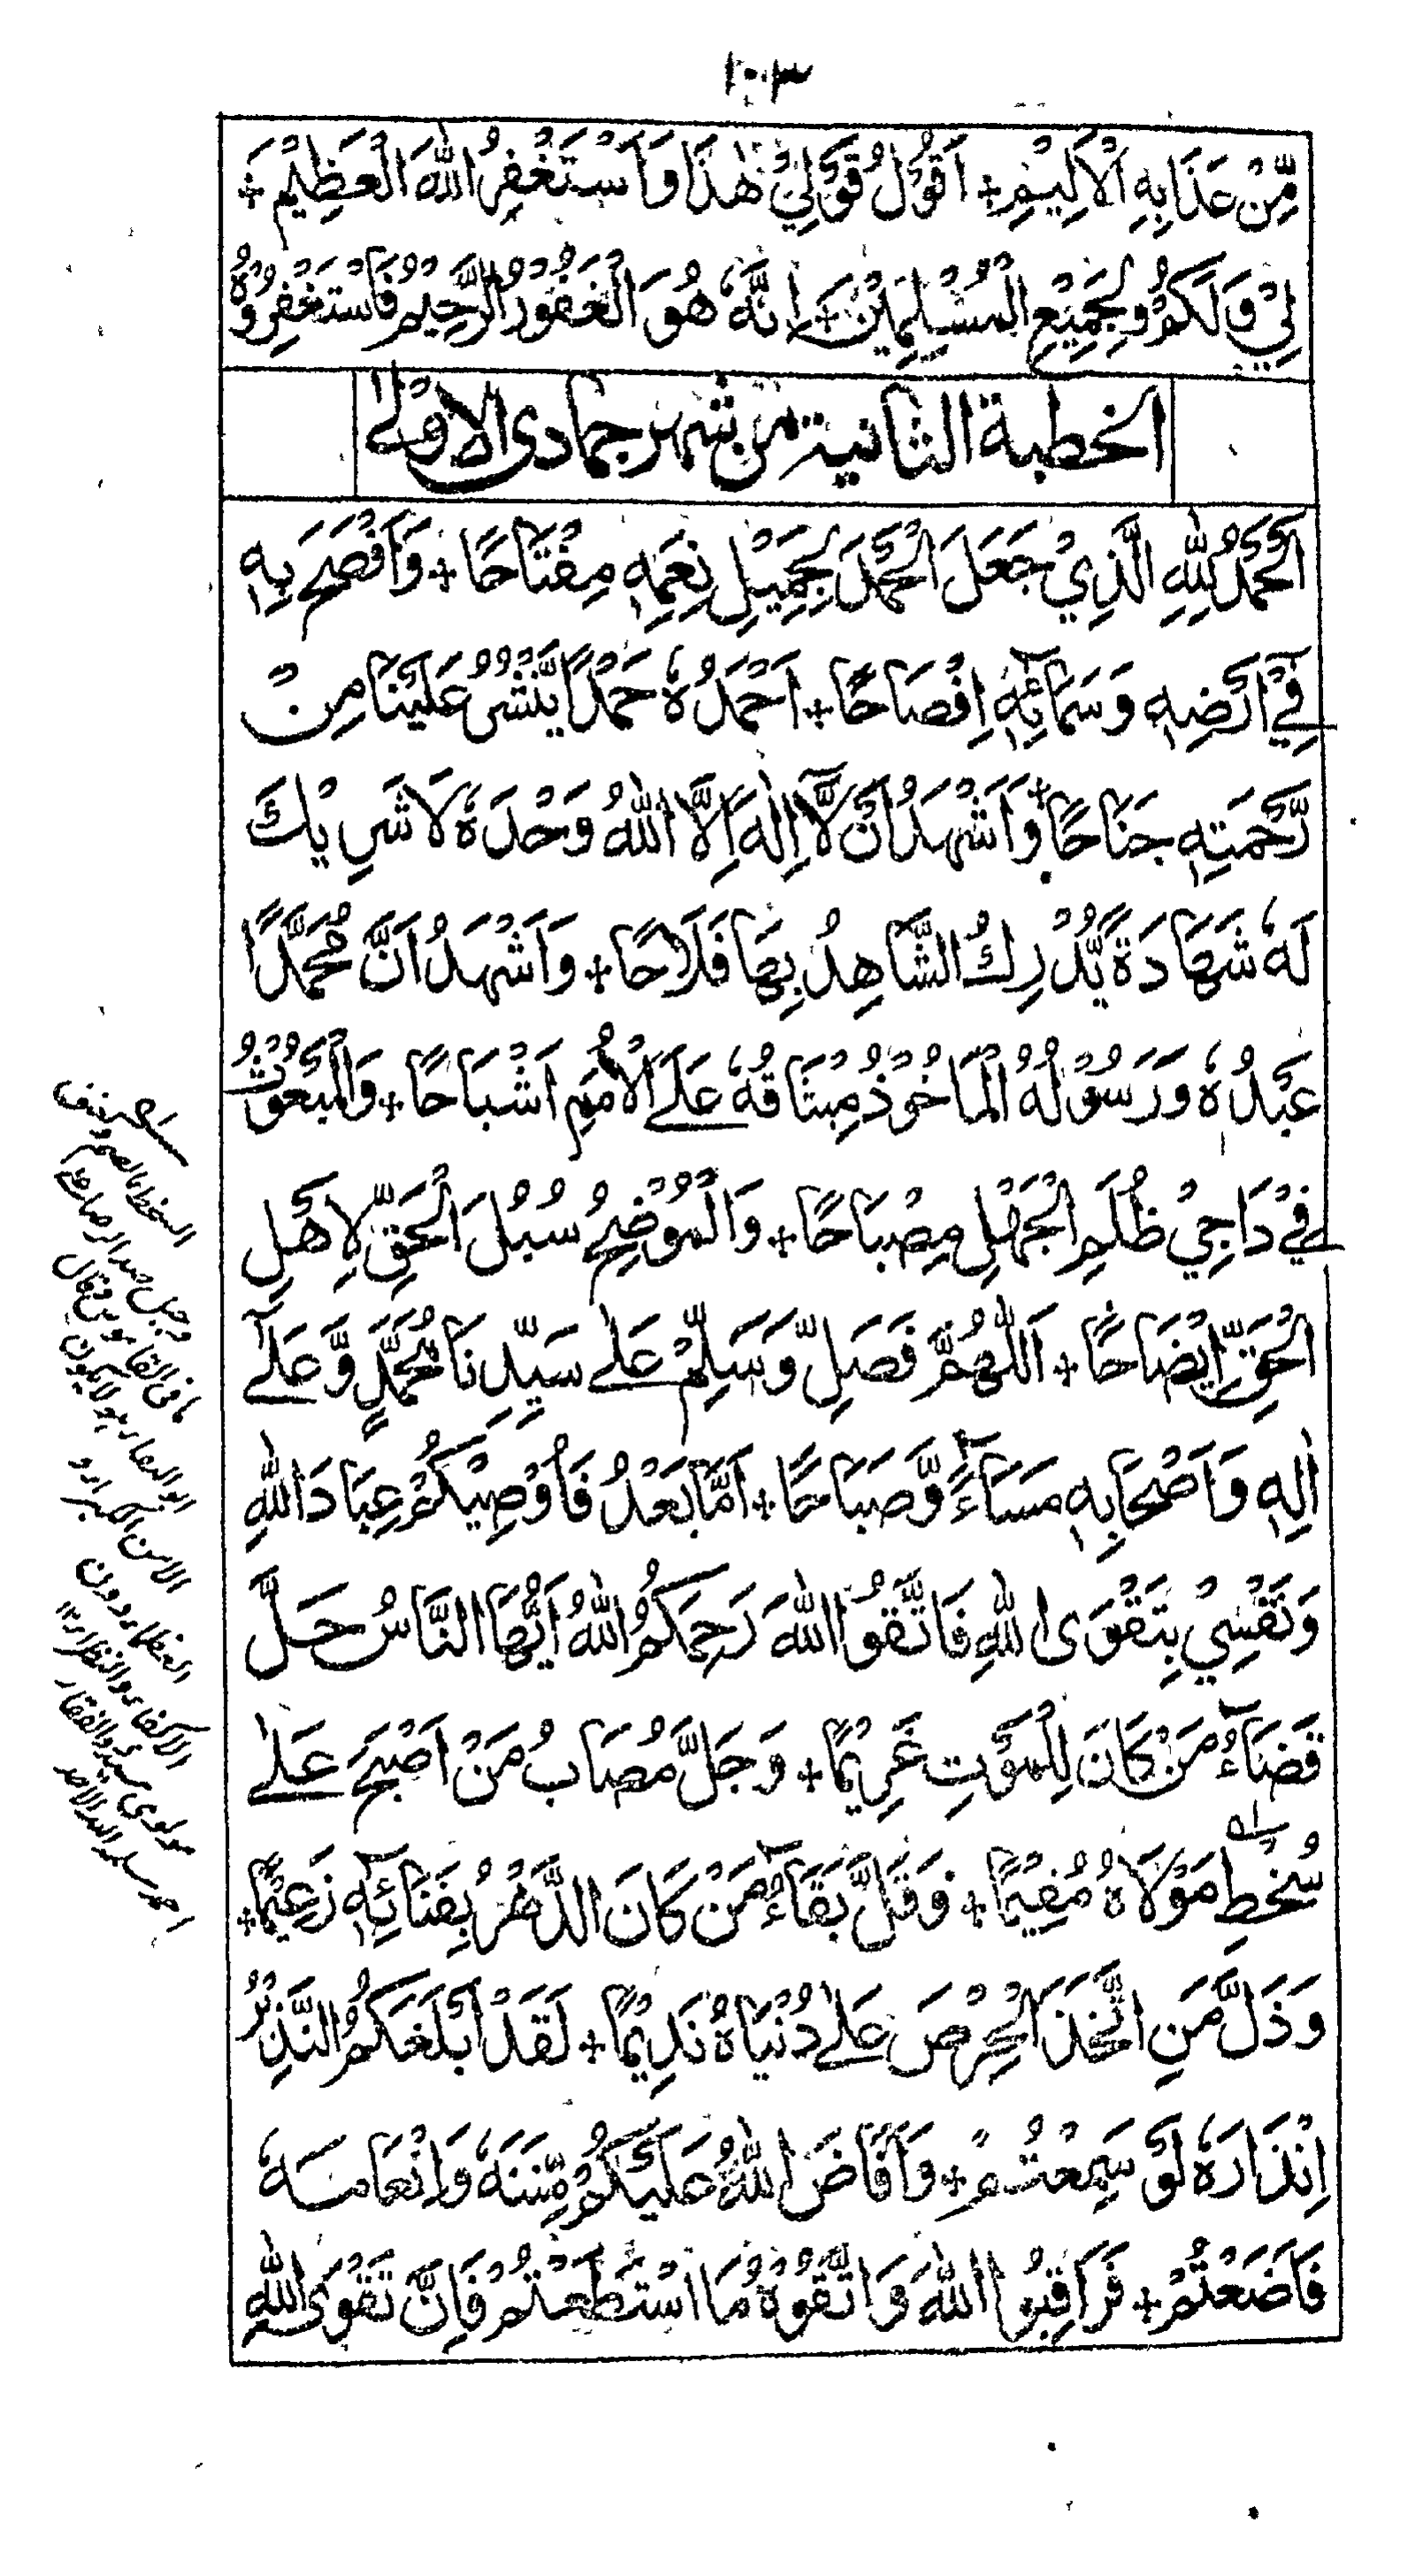 ١٠٣
مِّنْ عَذَابِهِ الْاَلِيْمِ + اَقُوْلُ قَوْلِيْ هٰذَا وَاَسْتَغْفِرُ اللّٰهَ الْعَظِيْمَ +
لِيْ وَلَكُمْ وَلِجَمِيْعِ الْمُسْلِمِيْنَ + اِنَّهٗ هُوَ الْغَفُوْرُ الرَّحِيْمُ فَاسْتَغْفِرُوْهُ
الخطبة الثانية من شهر جمادى الاولىٰ
اَلْحَمْدُ لِلّٰهِ الَّذِيْ جَعَلَ الْحَمْدَ لِجَمِيْلِ نِعَمِهٖ مِفْتَاحًا + وَاَفْصَحَ بِهٖ
فِيْٓ اَرْضِهٖ وَسَمَآئِهٖٓ اِفْصَاحًا + اَحْمَدُهٗ حَمْدًا يَّنْشُرُ عَلَيْنَا مِنْ
رَّحْمَتِهٖ جَنَاحًا + وَاَشْهَدُ اَنْ لَّآ اِلٰهَ اِلَّا اللّٰهُ وَحْدَهٗ لَا شَرِيْكَ
لَهٗ شَهَادَةً يُّدْرِكُ الشَّاهِدُ بِهَا فَلَاحًا + وَاَشْهَدُ اَنَّ مُحَمَّدًا
عَبْدُهٗ وَرَسُوْلُهُ الْمَاْخُوْذُ مِيْثَاقُهٗ عَلَى الْاُمَمِ اَشْبَاحًا + وَالْمَبْعُوْثُ
فِيْ دَاجِيْ ظُلَمِ الْجَهْلِ مِصْبَاحًا + وَالْمُوْضِحُ سُبُلَ الْحَقِّ لِاَهْلِ
الْحَقِّ اِيْضَاحًا + اَللّٰهُمَّ فَصَلِّ وَسَلِّمْ عَلٰى سَيِّدِنَا مُحَمَّدٍ وَّعَلٰٓى
اٰلِهٖ وَاَصْحَابِهٖ مَسَآءً وَّصَبَاحًا + اَمَّا بَعْدُ فَاُوْصِيْكُمْ عِبَادَ اللّٰهِ
وَنَفْسِيْ بِتَقْوَى اللّٰهِ فَاتَّقُوا اللّٰهَ رَحِمَكُمُ اللّٰهُ اَيُّهَا النَّاسُ حَلَّ
قَضَآءُ مَنْ كَانَ لِلْمَوْتِ غَرِيْمًا + وَجَلَّ مُصَابُ مَنْ اَصْبَحَ عَلٰى
سُخْطِ مَوْلَاهُ مُقِيْمًا + وَقَلَّ بَقَآءُ مَنْ كَانَ الدَّهْرُ بِفَنَآئِهٖ زَعِيْمًا +
وَذَلَّ مَنِ اتَّخَذَ الْحِرْصَ عَلٰى دُنْيَاهُ نَدِيْمًا + لَقَدْ اَبْلَغَكُمُ النَّذِيْرُ
اِنْذَارَهٗ لَوْ سَمِعْتُمْ + وَاَفَاضَ اللّٰهُ عَلَيْكُمْ مِّنَنَهٗ وَاِنْعَامَهٗ
فَاَضَعْتُمْ + فَرَاقِبُوا اللّٰهَ وَاتَّقُوْهُ مَا اسْتَطَعْتُمْ فَاِنَّ تَقْوَى اللّٰهِ
السخط بالضم
وجبل ضد الرضا
ما فى القاموس وقال
ابو البقاء هو لا يكون
الا من الكبراء و
العظماء دون
الاكفاء والنظراء ١٢
مولوى سيد ذوالفقار
احمد سلمه الله الاحد